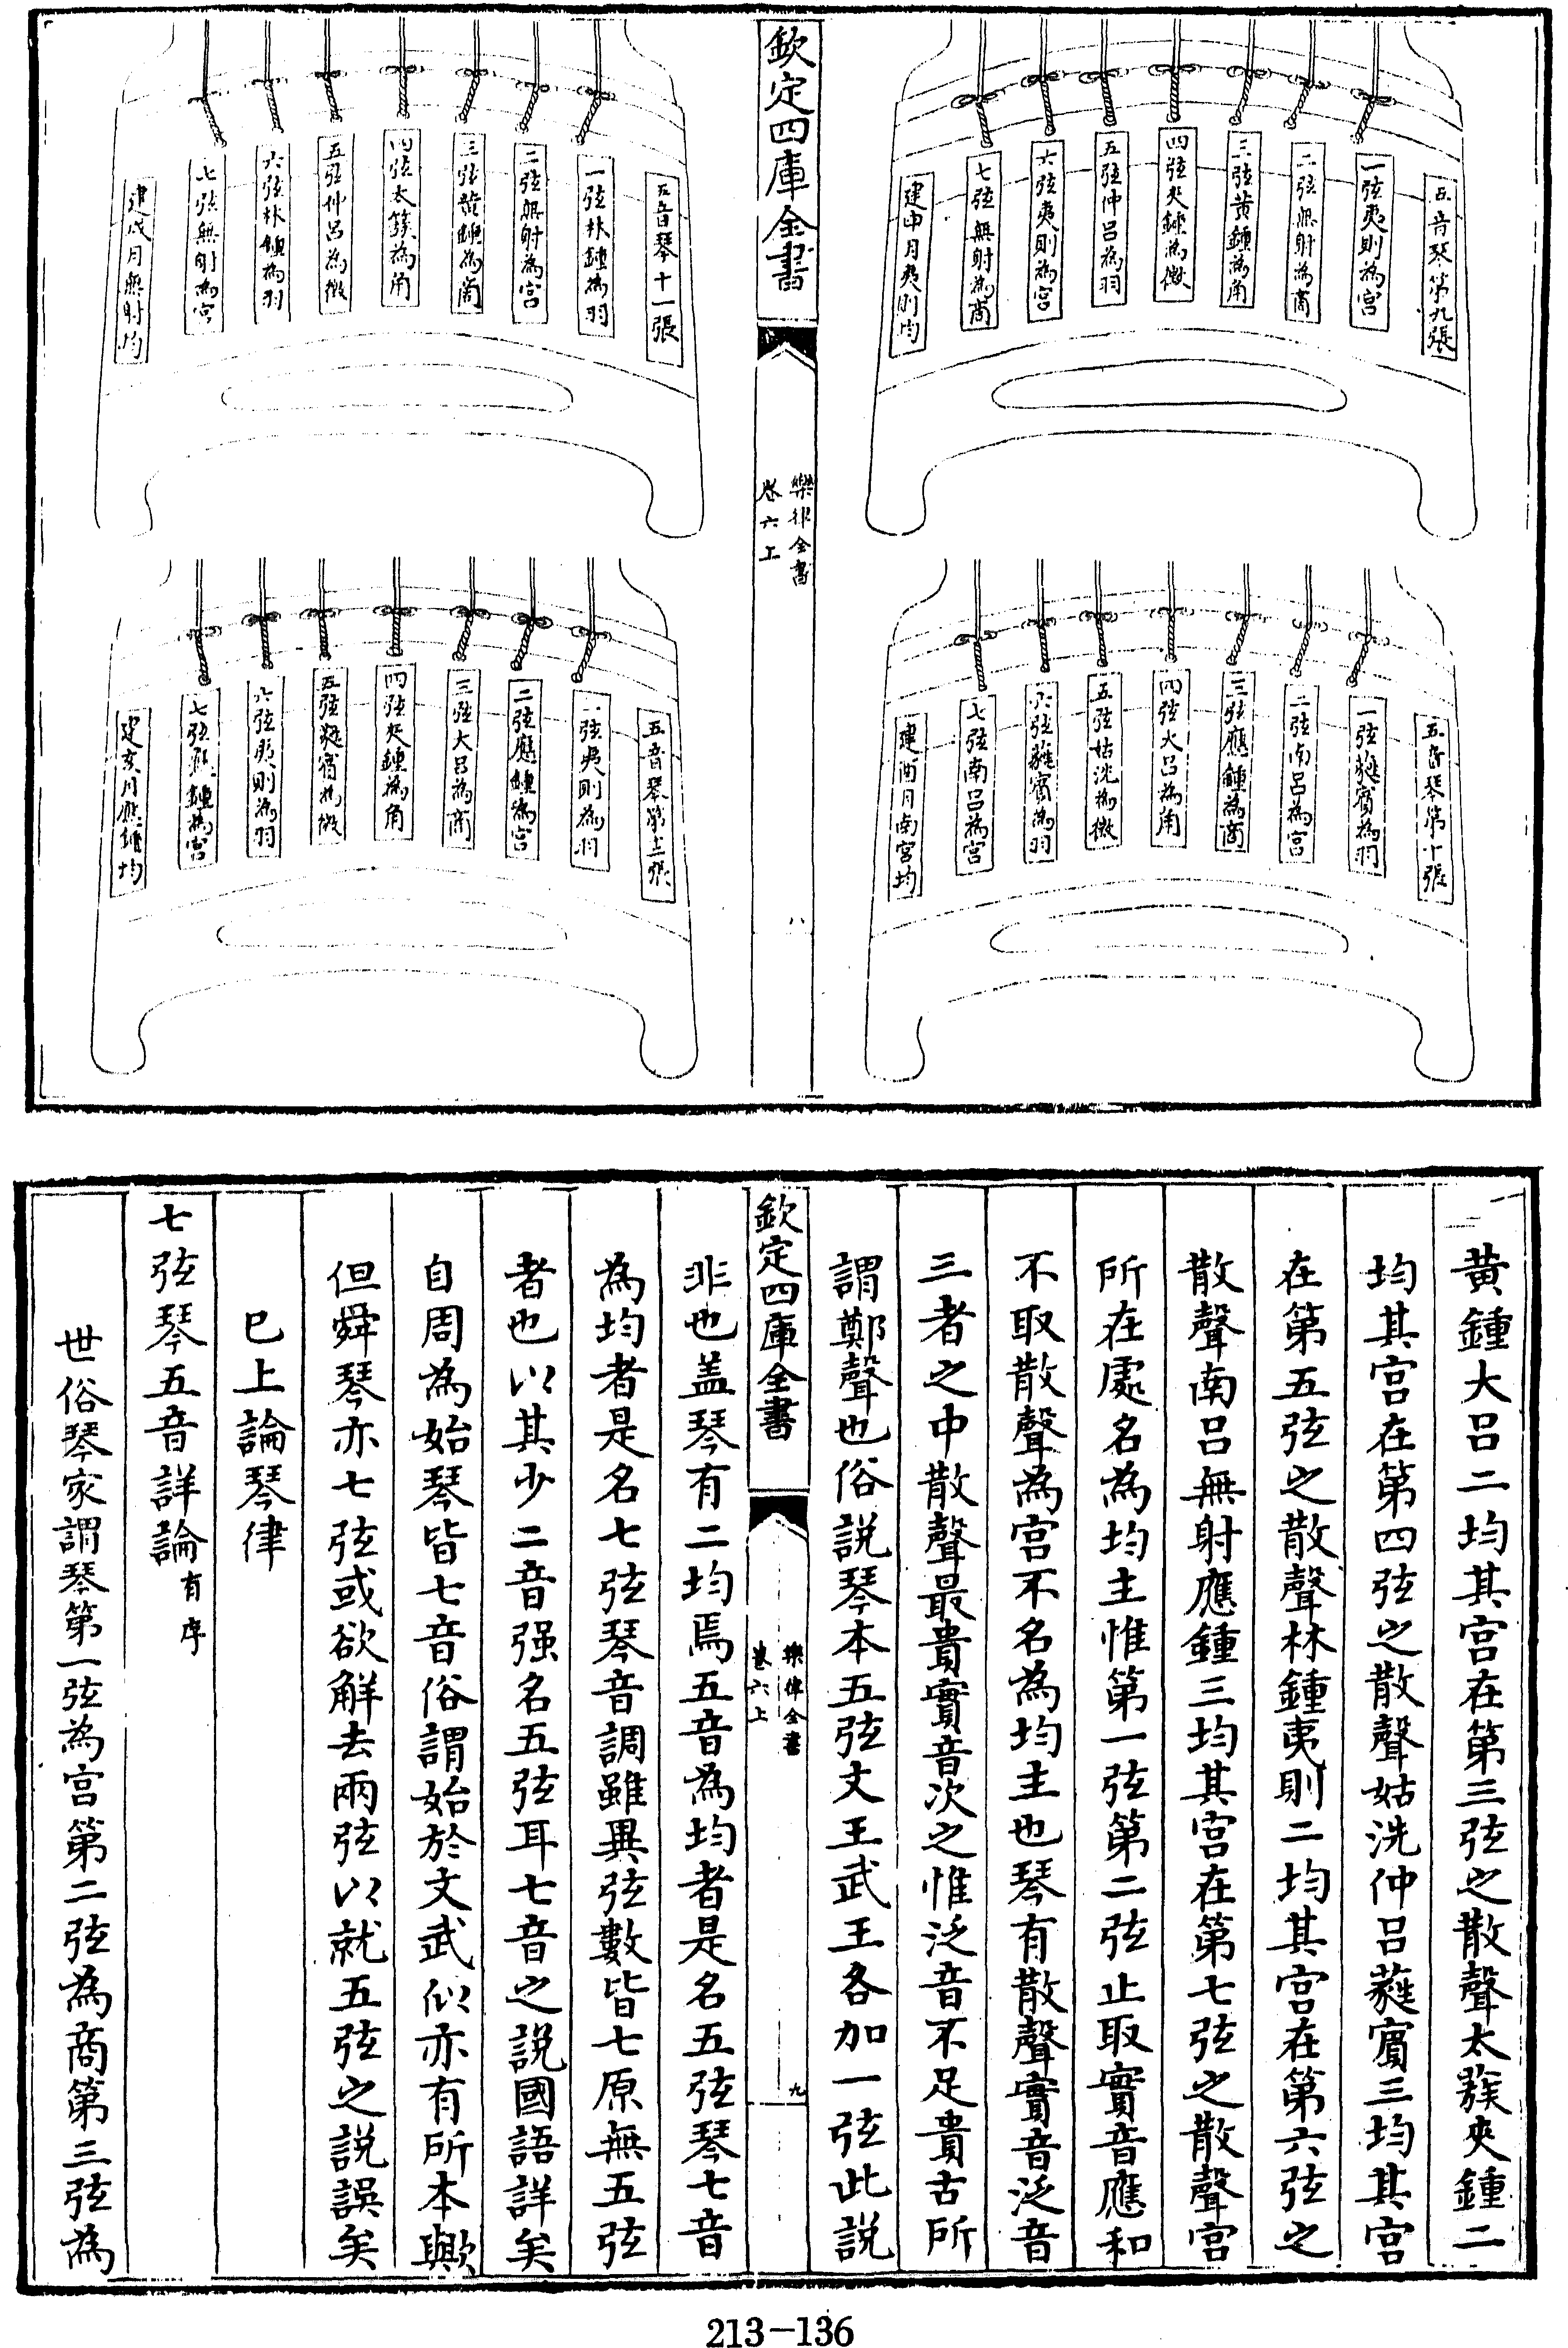 五音琴第九張
一弦夷則為宮
二弦無射為商
三弦黃鍾為角
四弦夾鍾為徵
五弦仲呂為羽
六弦夷則為宮
七弦無射為商
建申月夷則均
五音琴第十張
一弦蕤賓為羽
二弦南呂為宮
三弦應鍾為商
四弦大呂為角
五弦姑洗為徵
六弦蕤賓為羽
七弦南呂為宮
建酉月南宮均
欽定四庫全書
樂律全書
卷六上
八
五音琴十一張
一弦林鍾為羽
二弦無射為宮
三弦黃鍾為商
四弦太簇為角
五弦仲呂為徵
六弦林鍾為羽
七弦無射為宮
建戌月無射均
五音琴第十二張
一弦夷則為羽
二弦應鍾為宮
三弦大呂為商
四弦夾鍾為角
五弦蕤賓為徵
六弦夷則為羽
七弦應鍾為宮
建亥月應鍾均
黃鍾大呂二均其宫在第三弦之散聲太蔟夾鍾二
均其宫在第四弦之散聲姑洗仲呂蕤賓三均其宫
在第五弦之散聲林鍾夷則二均其宫在第六弦之
散聲南呂無射應鍾三均其宫在第七弦之散聲宫
所在處名為均主惟第一弦第二弦止取實音應和
不取散聲為宫不名為均主也琴有散聲實音泛音
三者之中散聲最貴實音次之惟泛音不足貴古所
謂鄭聲也俗説琴本五弦文王武王各加一弦此説
欽定四庫全書
樂律全書
卷六上
九
非也盖琴有二均焉五音為均者是名五弦琴七音
為均者是名七弦琴音調雖異弦數皆七原無五弦
者也以其少二音强名五弦耳七音之説國語詳矣
自周為始琴皆七音俗謂始於文武似亦有所本歟
但舜琴亦七弦或欲解去兩弦以就五弦之説誤矣
已上論琴律
七弦琴五音詳論有序
世俗琴家謂琴第一弦為宫第二弦為商第三弦為
213-136